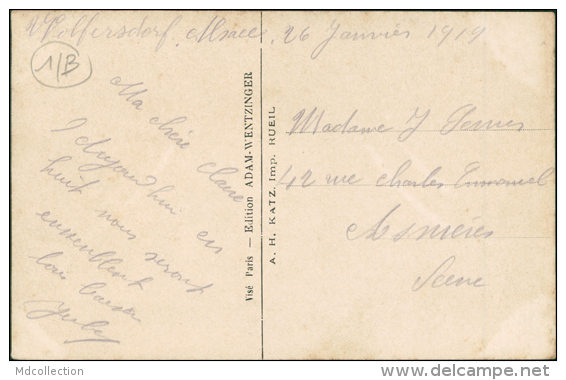 Wolfersdorf, Alsace, 26 Janvier 1919
1/B
Ma chère Claire
D'aujourd'hui en
huit nous serons
ensemble
bons baisers
Visé Paris — Edition ADAM-WENTZINGER
A. H. KATZ, Imp. RUEIL
Madame J
42 rue Charles Emmanuel
Asnières
Seine
Mdcollection
www.delcampe.net